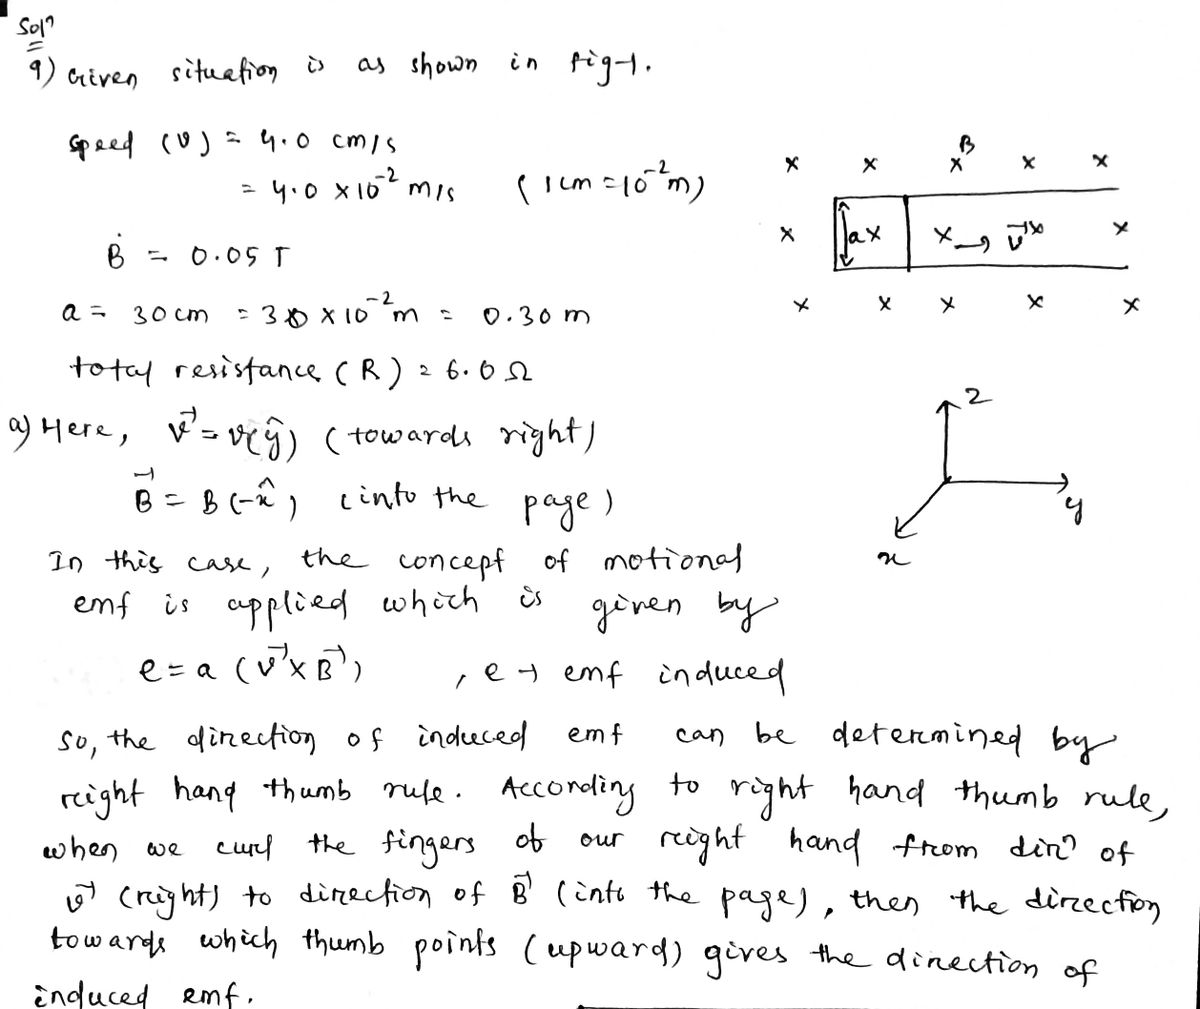 Solⁿ
9) Given situation is as shown in fig-1.
speed (v) = 4.0 cm/s
= 4.0 × 10⁻² m/s (1cm = 10⁻² m)
B = 0.05 T
a = 30 cm = 30 × 10⁻² m = 0.30 m
total resistance (R) = 6.0 Ω
B
a
v⃗
a) Here, v⃗ = v(ŷ) (towards right)
B⃗ = B (-x̂) (into the page)
z
y
x
In this case, the concept of motional
emf is applied which is given by
e = a (v⃗ × B⃗) , e → emf induced
So, the direction of induced emf can be determined by
right hand thumb rule. According to right hand thumb rule,
when we curl the fingers of our right hand from dirⁿ of
v⃗ (right) to direction of B⃗ (into the page), then the direction
towards which thumb points (upward) gives the direction of
induced emf.